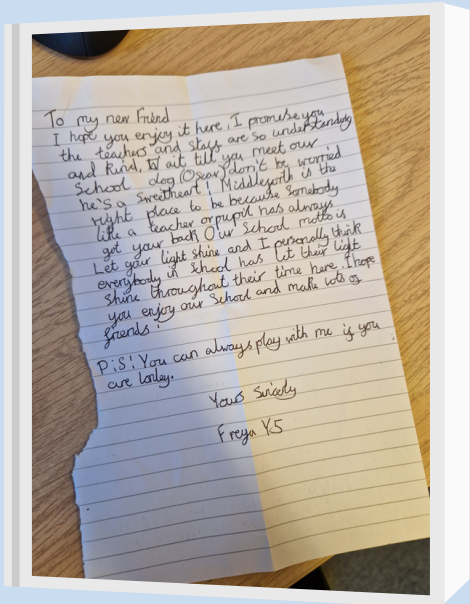 To my new Friend
I hope you enjoy it here, I promise you
the teachers and staff are so understanding
and kind, Wait till you meet our
School dog (Oscar) don't be worried
he's a sweetheart! Middleforth is the
right place to be because somebody
like a teacher or pupil has always
got your back Our School motto is
Let your light shine and I personally think
everybody in School has let their light
shine throughout their time here, I hope
you enjoy our School and make lots of
friends!
P.S! You can always play with me if you
are lonley.
Yours Sincerly
Freya Y5